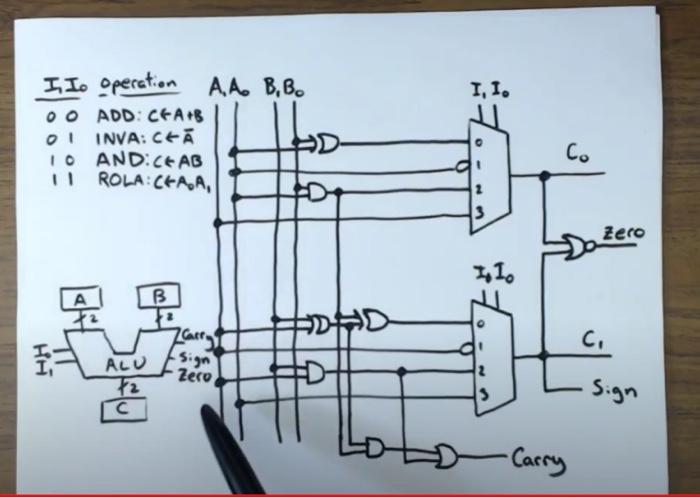 I₁I₀ operation
0 0 ADD: C←A+B
0 1 INVA: C←A̅
1 0 AND: C←AB
1 1 ROLA: C←A₀A₁
A₁A₀ B₁B₀
I₁ I₀
0
1
2
3
C₀
Zero
I₁ I₀
0
1
2
3
C₁
Sign
Carry
A B
2 2
I₀
I₁
ALU
Carry
Sign
Zero
2
C